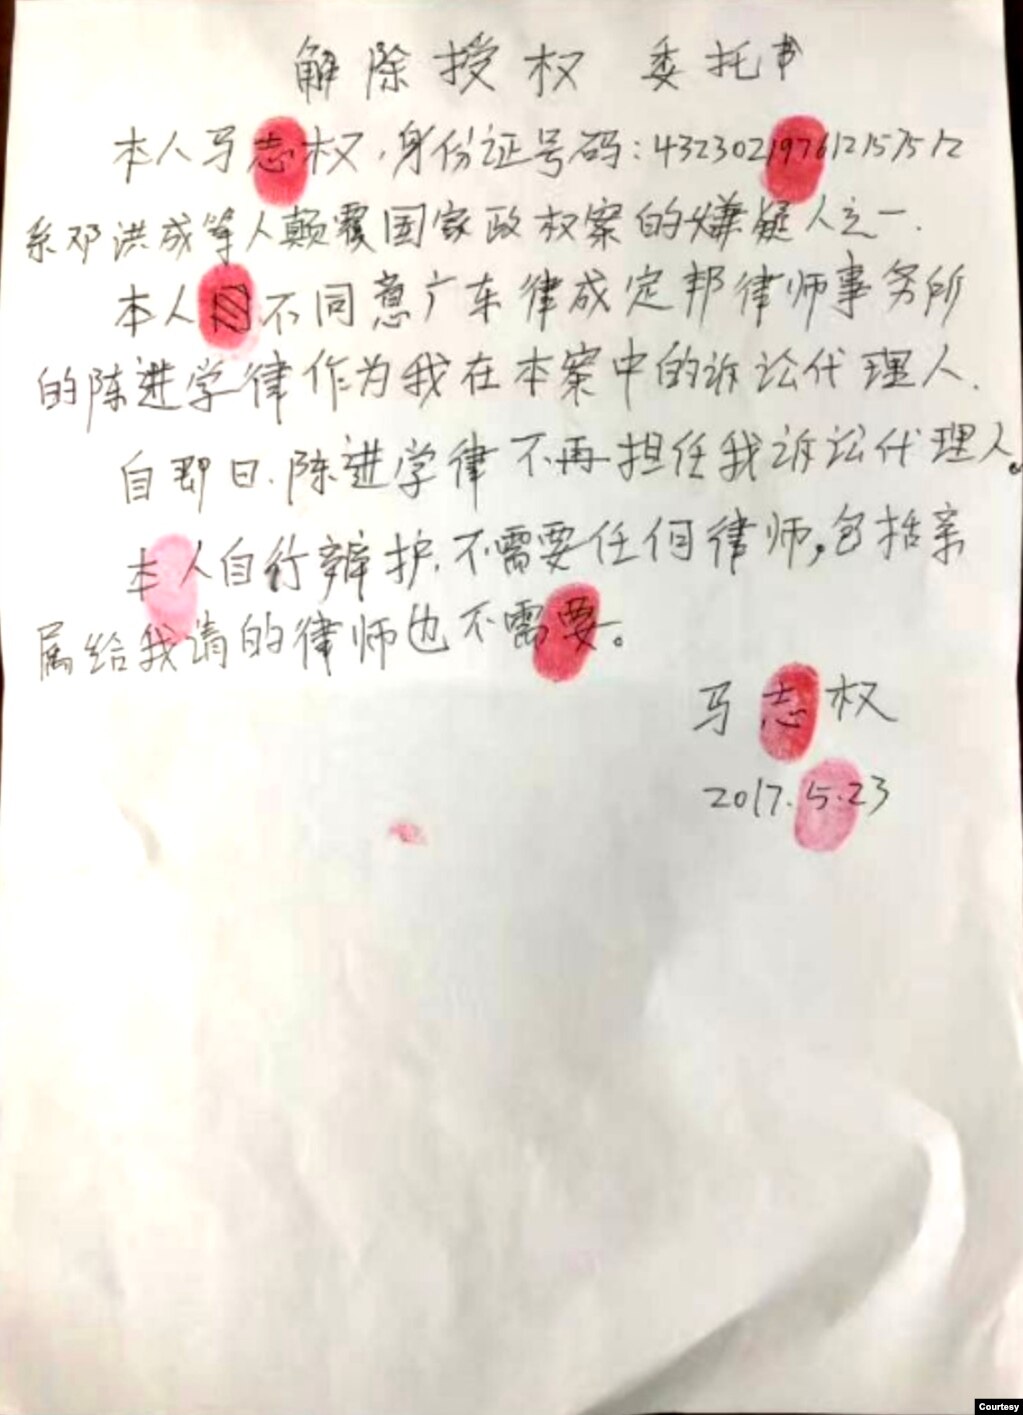 解除授权 委托书
本人马志权,身份证号码:432302197612157512
系邓洪成等人颠覆国家政权案的嫌疑人之一.
本人不同意广东律成定邦律师事务所
的陈进学律作为我在本案中的诉讼代理人.
自即日.陈进学律不再担任我诉讼代理人。
本人自行辩护.不需要任何律师,包括亲
属给我请的律师也不需要。
马志权
2017.5.23
Courtesy